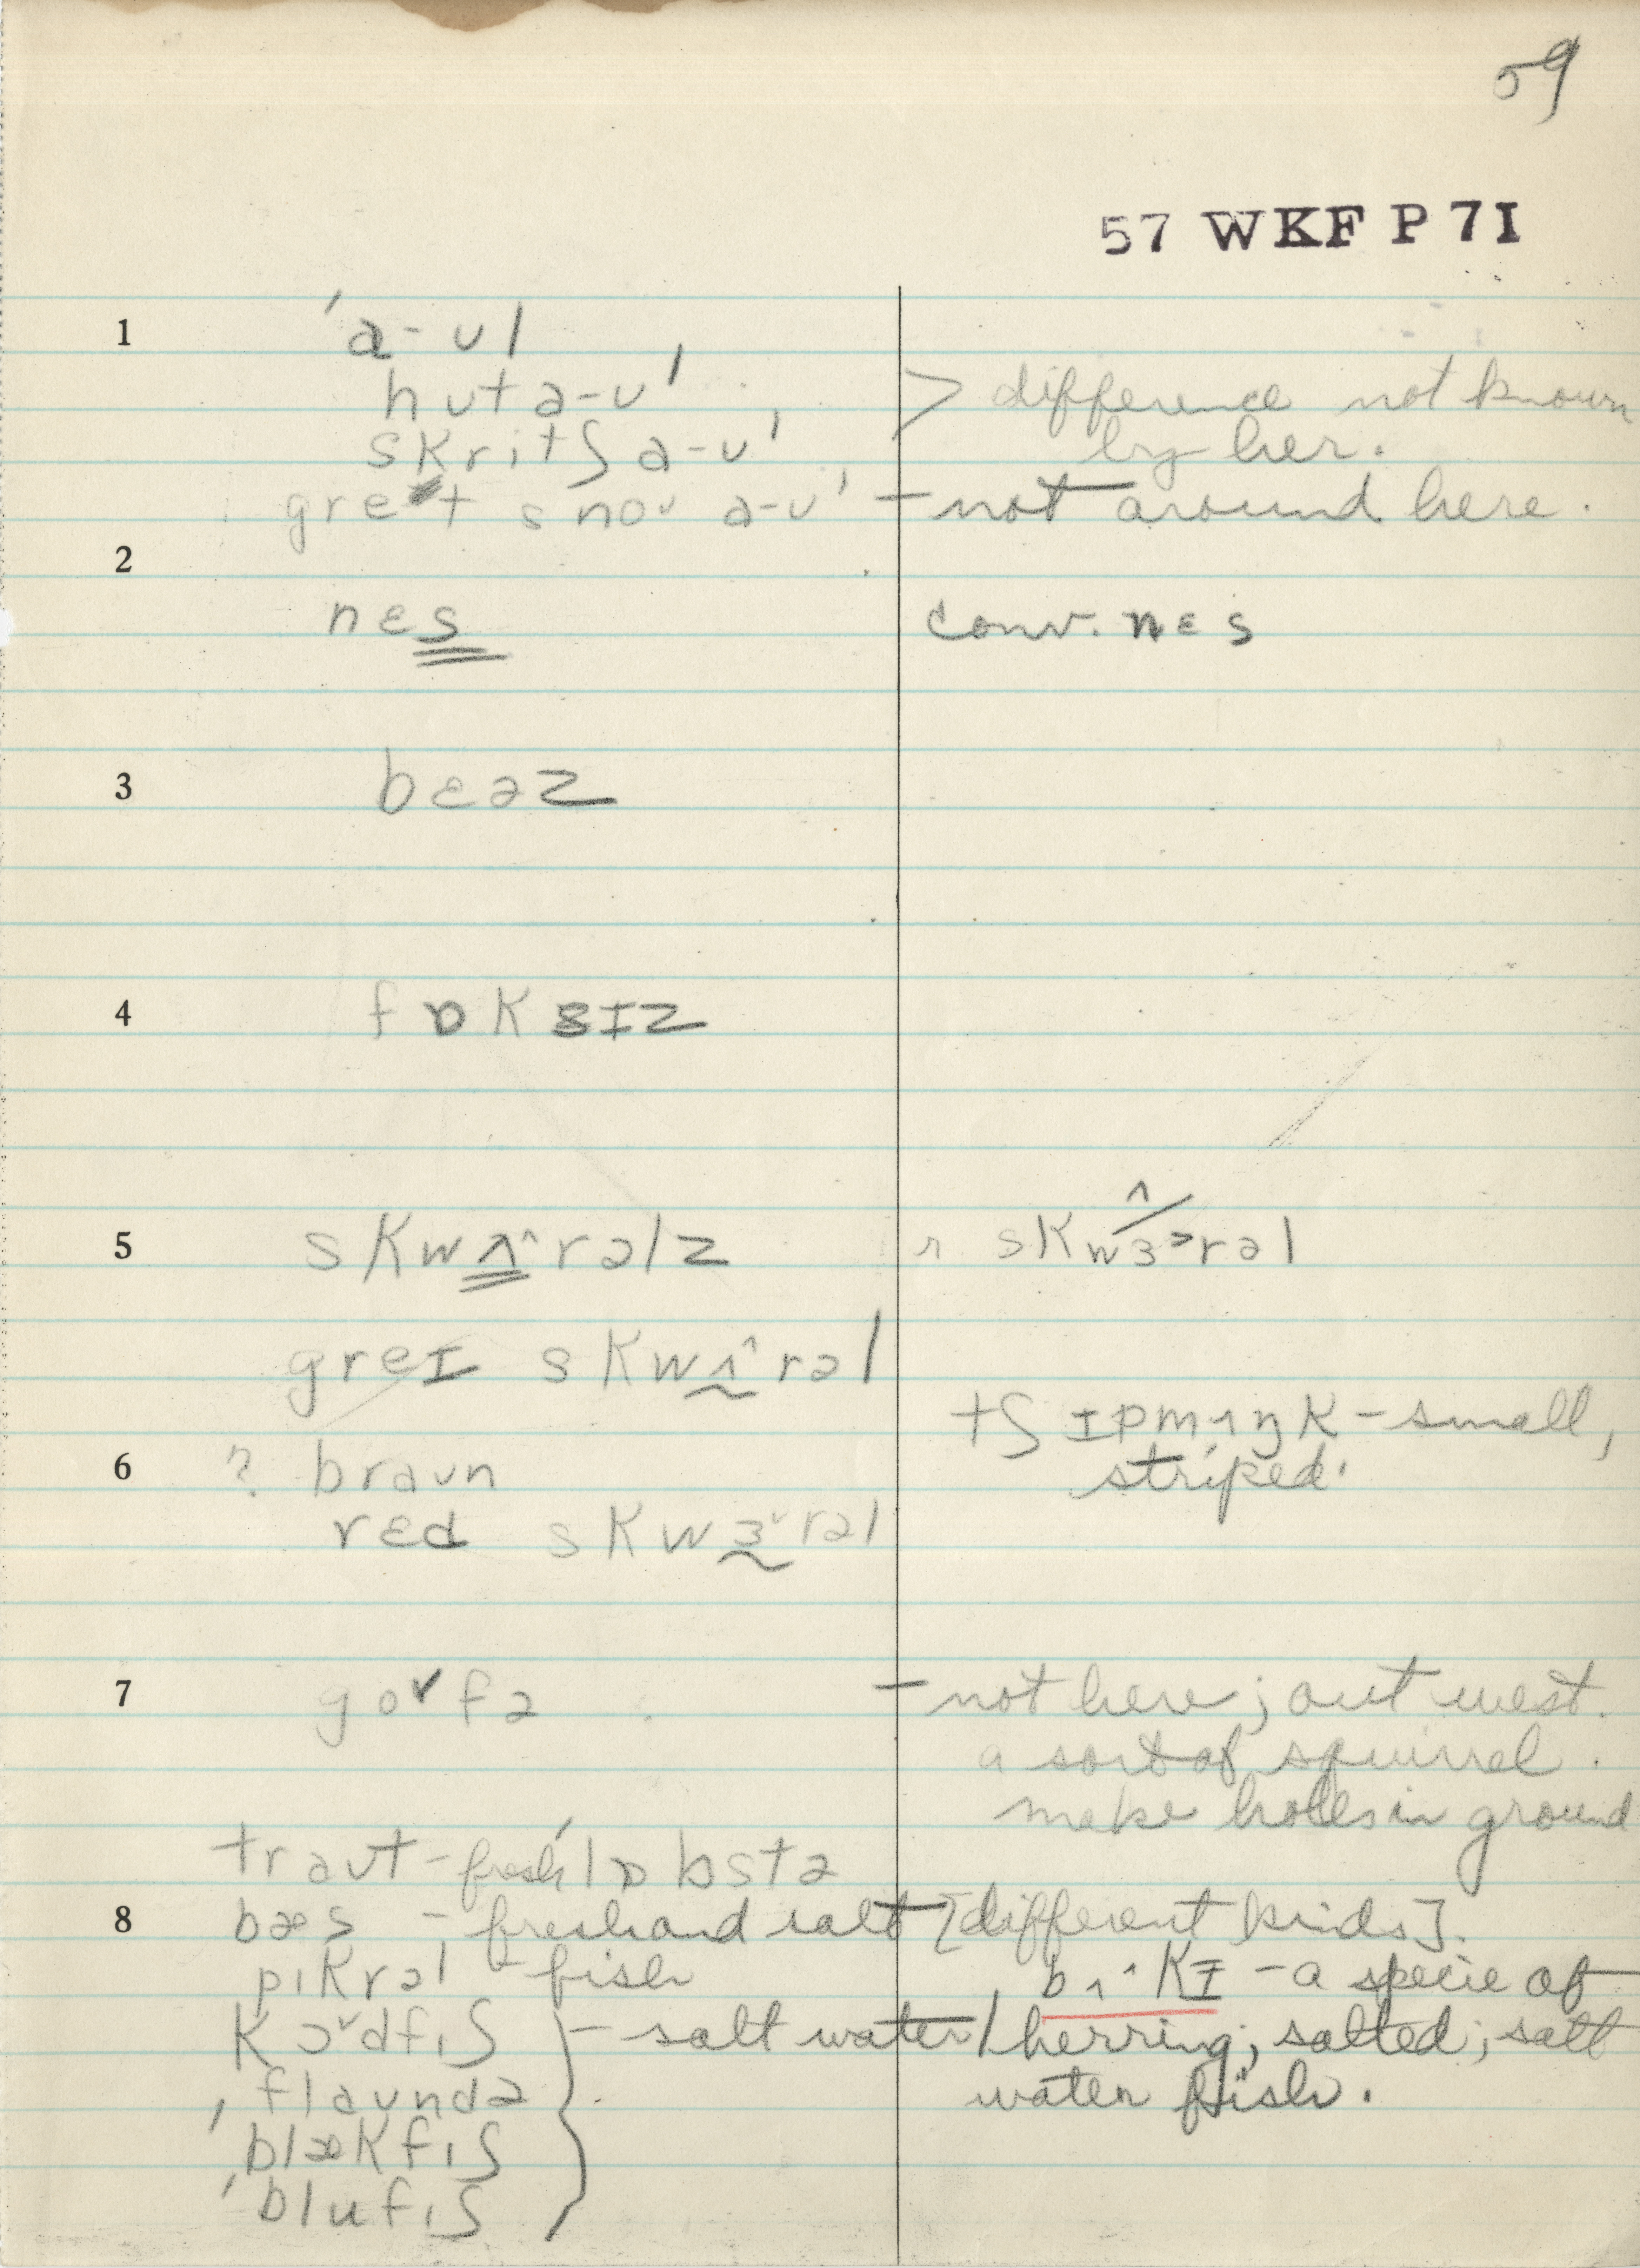 59
57 WKF P 7I
1 ˈa-ʊl
hʊt a-ʊl > difference not known
skritʃ a-ʊl by her.
gret snoʊ a-ʊl – not around here.
2
nɛs conv. nɛs
3 bɛəz
4 fɒksɪz
5 skwʌ^rəlz r skwɜ>rəl
greɪ skwʌ^rəl
tʃɪpmʌŋk – small,
6 ? braʊn striped.
rɛd skwɜ˅rəl
7 go˅fə – not here; out west.
a sort of squirrel.
make holes in ground
traʊt – fresh ˈlɒbstə
8 bæs – fresh and salt [different kinds].
pɪkrəl – fish bʌ^kɪ – a specie of
kɔ˅dfɪʃ } – salt water / herring; salted; salt
ˈflaʊndə water fish.
ˈblækfɪʃ
ˈblufɪʃ